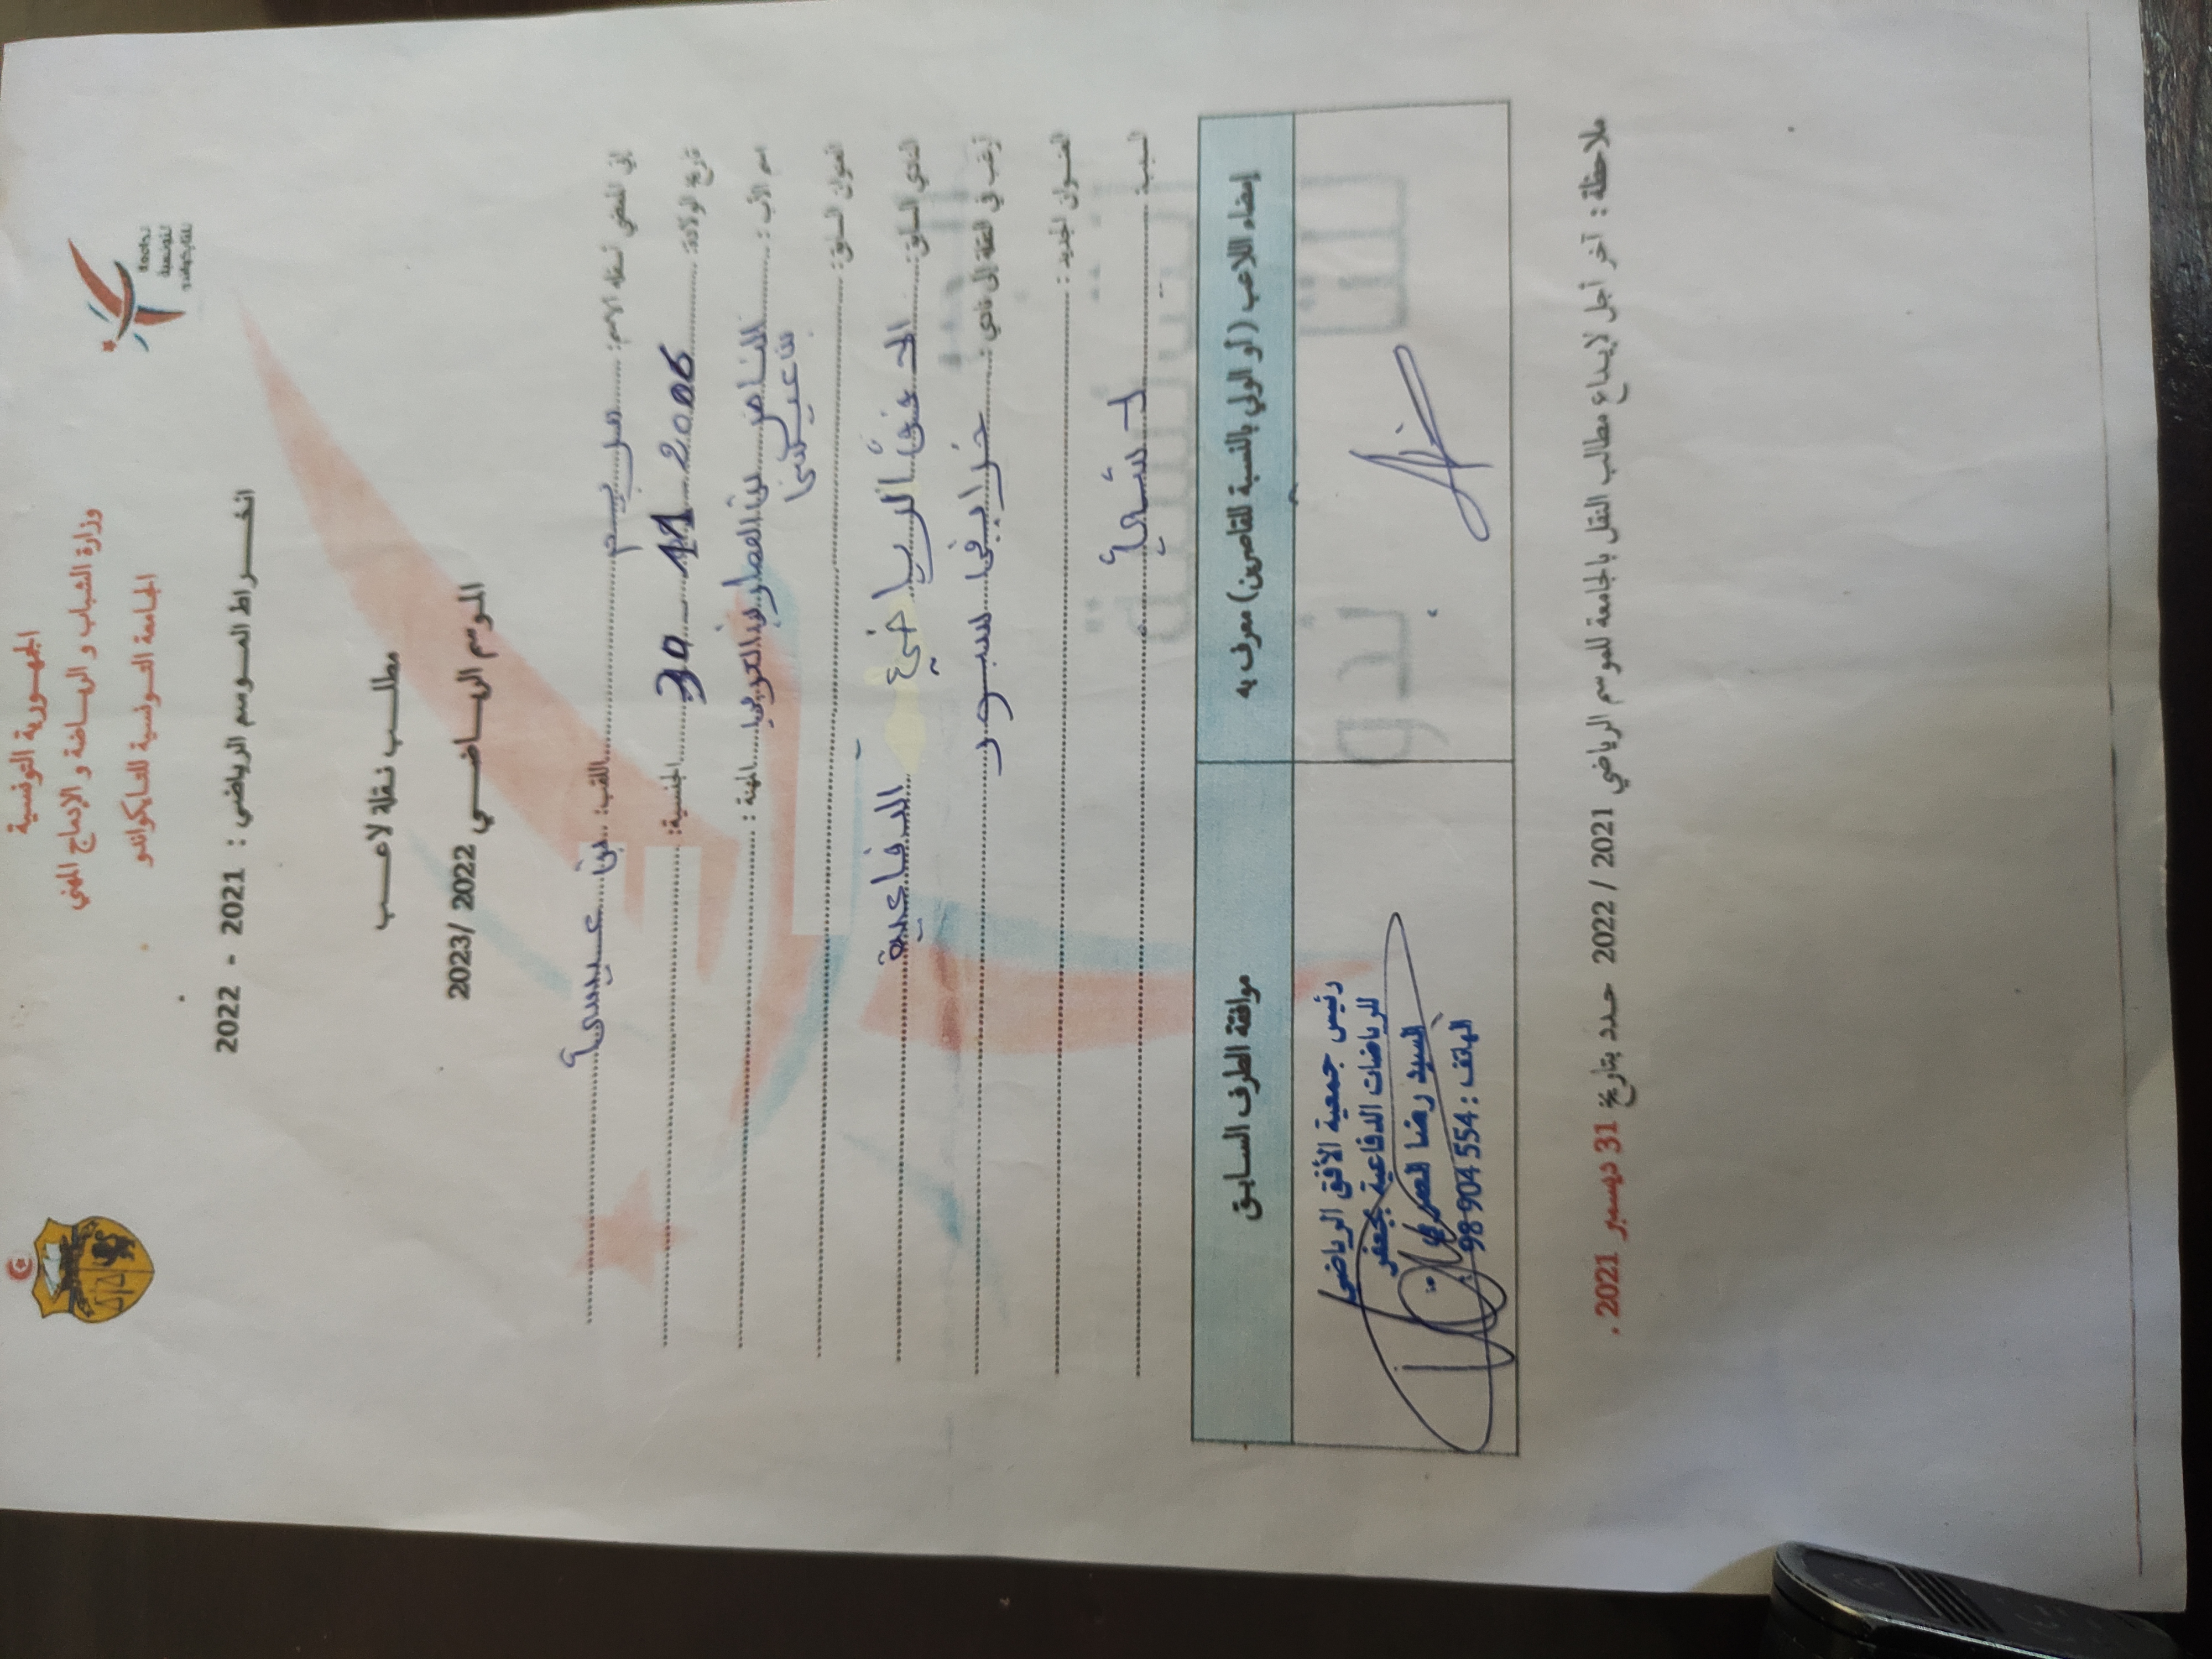 الجمهورية التونسية
وزارة الشباب و الرياضة و الإدماج المهني
الجامعة التونسية للتايكواندو
الجامعة
التونسية
للتايكواندو
انخراط الموسم الرياضي : 2021 - 2022
مطلب نقلة لاعب
الموسم الرياضي 2022 /2023
إني الممضي أسفله الاسم: مريم اللقب: بن عيسى
تاريخ الولادة: 30 - 11 - 2006 الجنسية:
اسم الأب: الناصر بن المهنة :
بن عيسى
العنوان السابق:
النادي السابق: الأفق الرياضي الدفاعية
أرغب في النقلة إلى نادي : سبور
العنوان الجديد :
السبب: لا شيء
إمضاء اللاعب (أو الولي بالنسبة للقاصرين) معرف به
موافقة الطرف السابق
رئيس جمعية الأفق الرياضي
للرياضات الدفاعية بجعفر
السيد رضا
الهاتف : 98904554
ملاحظة : آخر أجل لإيداع مطالب النقل بالجامعة للموسم الرياضي 2021 / 2022 حدد بتاريخ 31 ديسمبر 2021 .